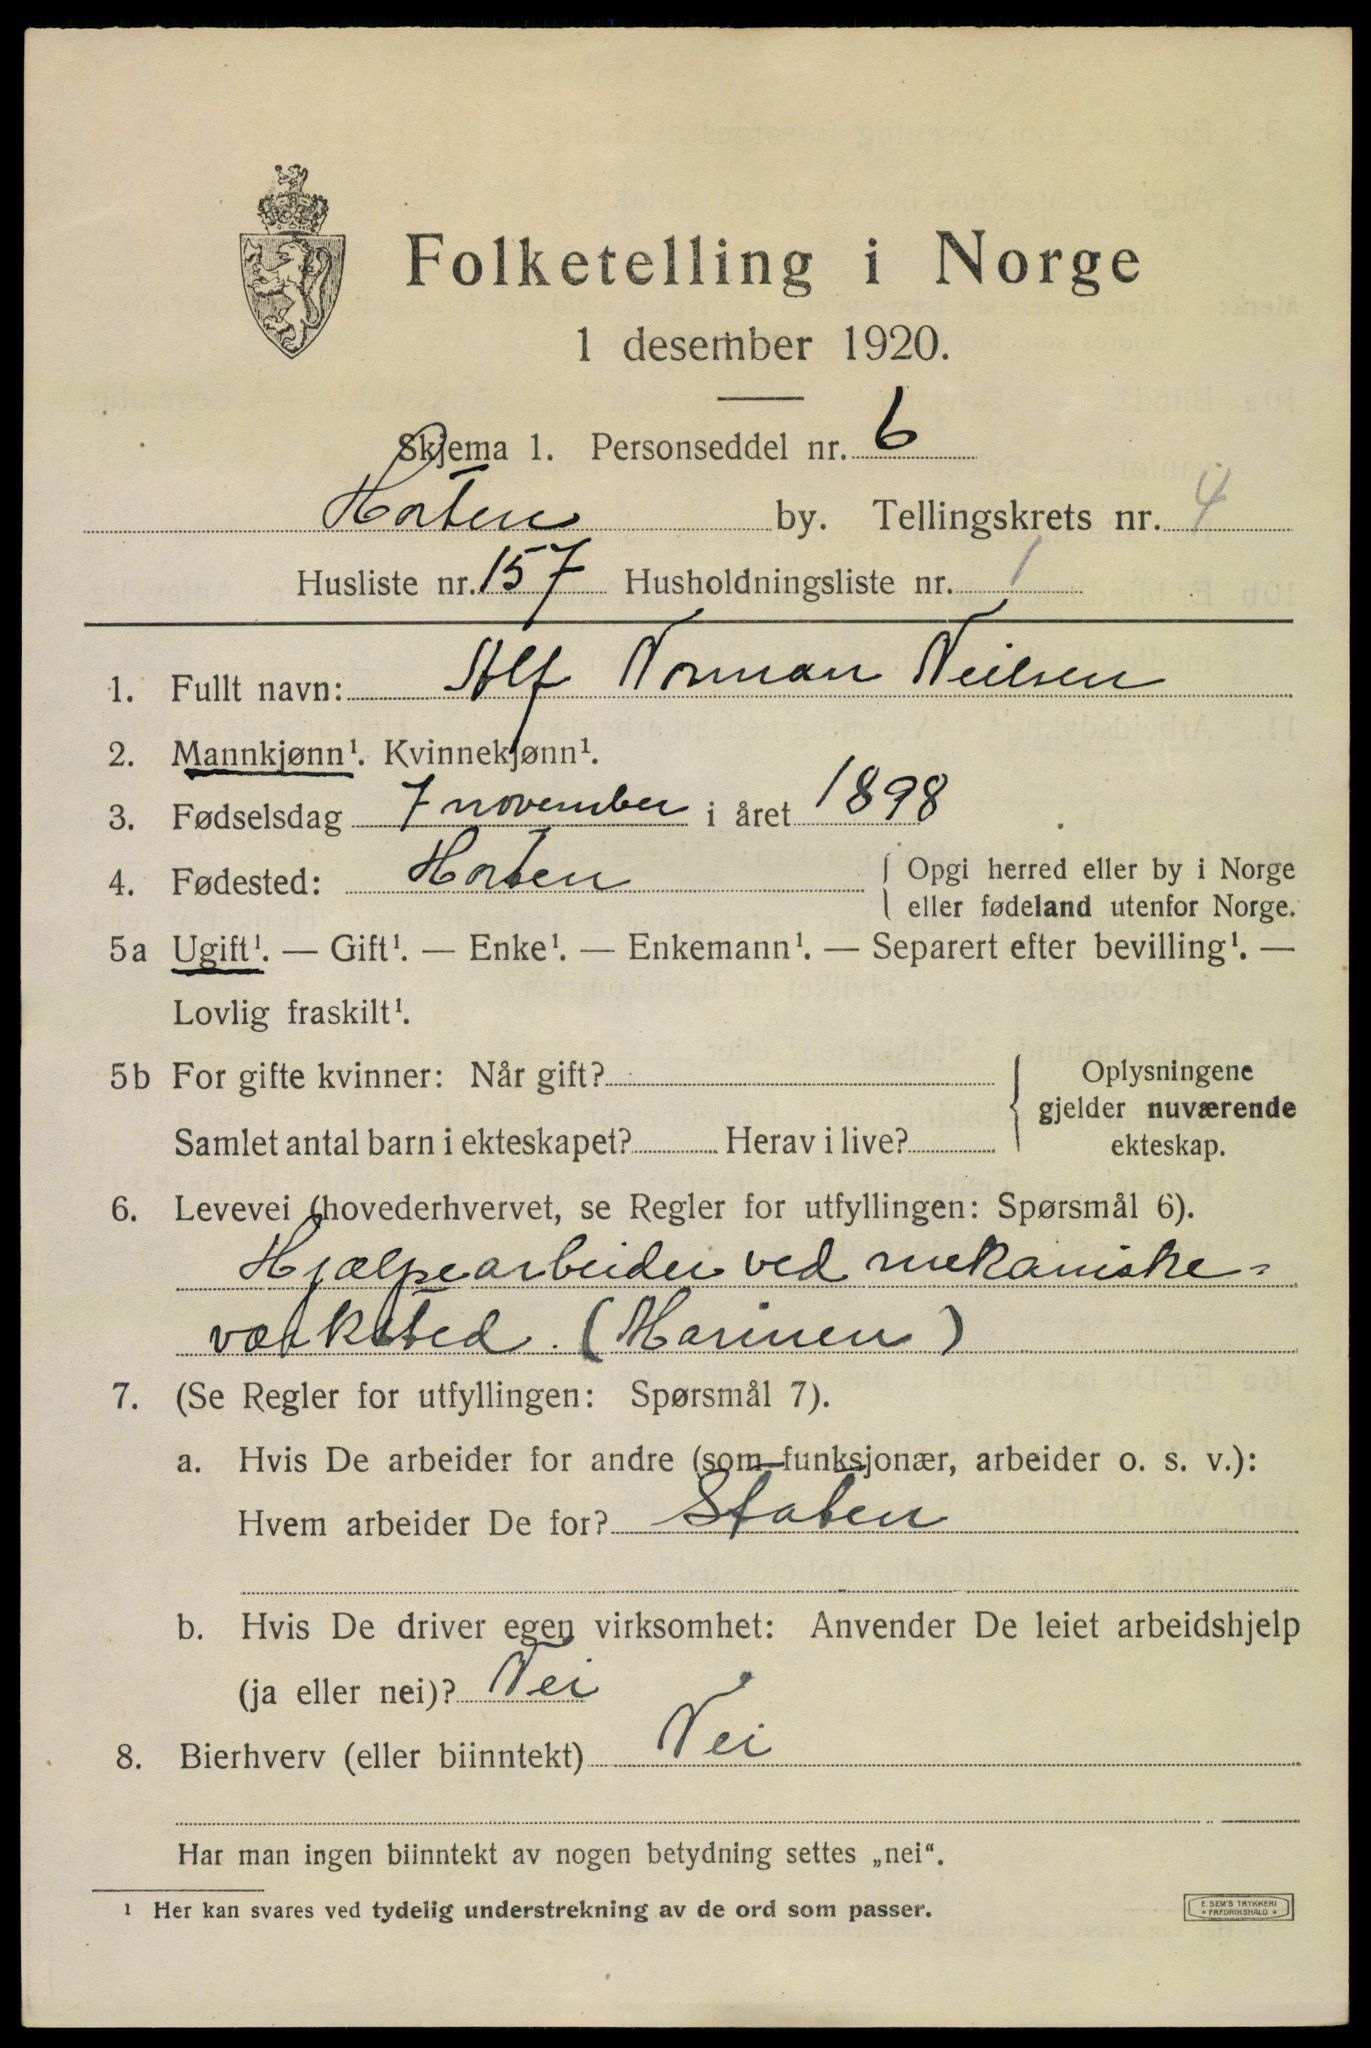 Folketelling i Norge
1 desember 1920.
Skjema 1. Personseddel nr. 6
Horten by. Tellingskrets nr. 4
Husliste nr. 157 Husholdningsliste nr. 1
1. Fullt navn: Alf Norman Neilsen
2. Mannkjønn¹. Kvinnekjønn¹.
3. Fødselsdag 7 november i året 1898
4. Fødested: Horten { Opgi herred eller by i Norge
eller fødeland utenfor Norge.
5a Ugift¹. — Gift¹. — Enke¹. — Enkemann¹. — Separert efter bevilling¹. —
Lovlig fraskilt¹.
5b For gifte kvinner: Når gift?
Samlet antal barn i ekteskapet? Herav i live?
{ Oplysningene
gjelder nuværende
ekteskap.
6. Levevei (hovederhvervet, se Regler for utfyllingen: Spørsmål 6).
Hjælpearbeider ved mekaniske-
værksted. (Marinen)
7. (Se Regler for utfyllingen: Spørsmål 7).
a. Hvis De arbeider for andre (som funksjonær, arbeider o. s. v.):
Hvem arbeider De for? Staten
b. Hvis De driver egen virksomhet: Anvender De leiet arbeidshjelp
(ja eller nei)? Nei
8. Bierhverv (eller biinntekt) Nei
Har man ingen biinntekt av nogen betydning settes „nei“.
¹ Her kan svares ved tydelig understrekning av de ord som passer.
E. SEM'S TRYKKERI
* FREDRIKSHALD *